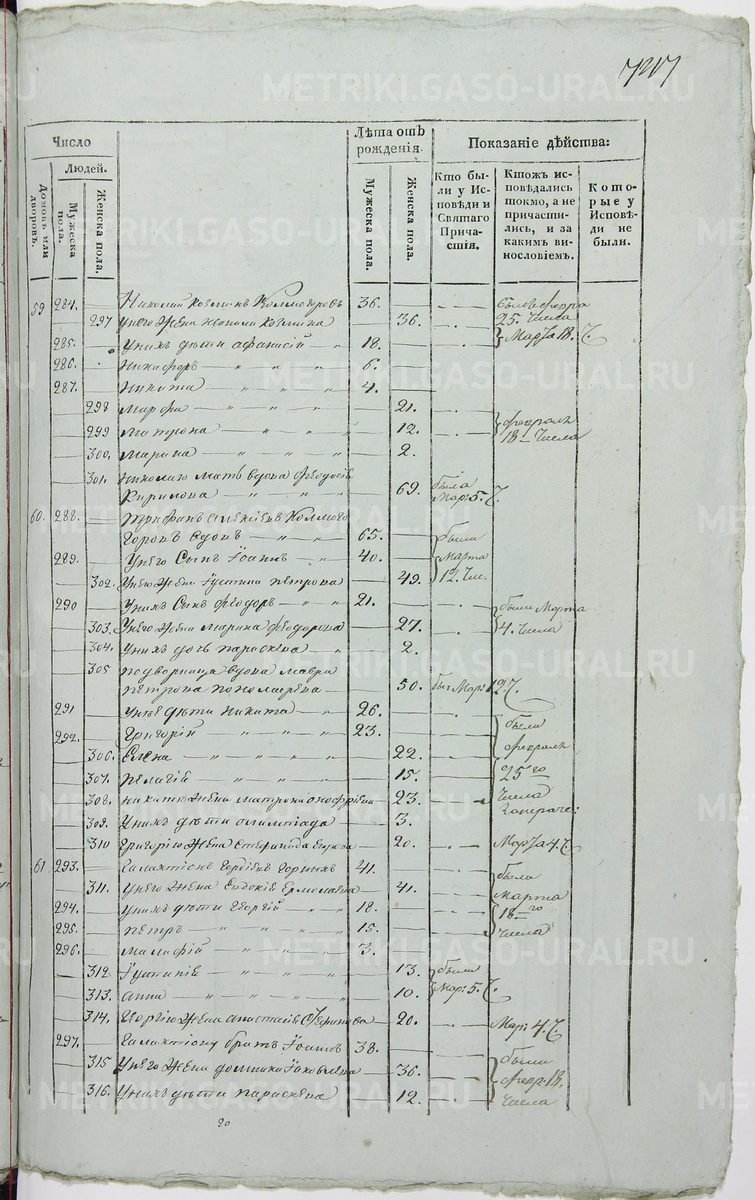 METRIKI.GASO-URAL.RU
Число
Людей.
Домовъ или дворовъ.
Мужеска пола.
Женска пола.
Лѣта отъ рожденія.
Мужеска пола.
Женска пола.
Показаніе дѣйства:
Кто были у Исповѣди и Святаго Причастія.
Ктожъ исповѣдались токмо, а не причастились, и за какимъ винословіемъ.
Которые у Исповѣди не были.
59 284. Николай Козминъ Колмогоровъ 36.
297 У него жена Козмина 36. 25. числа
285. У нихъ дѣти Афанасій 18. Марта 18.
286. Никифоръ 6.
287. Никита 4.
298 Марфа 21.
299 Матрона 12. февраля 18 числа
300. Марина 2.
301. Николаю мать вдова Феодосія
Кирилова 69. была Мар: 5.
60. 288. Трифанъ Алексіевъ Колмого
горовъ вдовъ 65. были
289. У него сынъ Іоаннъ 40. Марта
302. У него жена Іустина Петрова 49. 12. чи.
290 У нихъ сынъ Феодоръ 21. были Марта
303. У него жена Марина Феодорова 27. 4. числа
304. У нихъ дочь Параскева 2.
305 Подворница вдова Мавра
Петрова Пономарева 50. Мар: 12.
291 У нея дѣти Никита 26.
292. Григорій 23. были
306. Елена 22. февраля
307. Пелагія 15. 25го
308. Никитѣ жена Матрона Онофріева 23. числа
309. У нихъ дѣти Олимпіада 3.
310 Григорію жена 20. Марта 4.
61. 293. Галактіонъ Гордіевъ 41.
311. У него жена Евдокія Ермолаева 41. были
294. У нихъ дѣти Георгій 18. Марта 18го
295. Петръ 15. числа
296. Малафій 3.
312. Іустинія 13. были
313. Анна 10. Мар: 5.
314. Георгію жена Анастасія 20. Мар: 4.
297. Галактіону братъ Іоаннъ 38.
315 У него жена Домника Іаковлева 36. были февр. 18.
316. У нихъ дѣти Параскева 12. числа
20